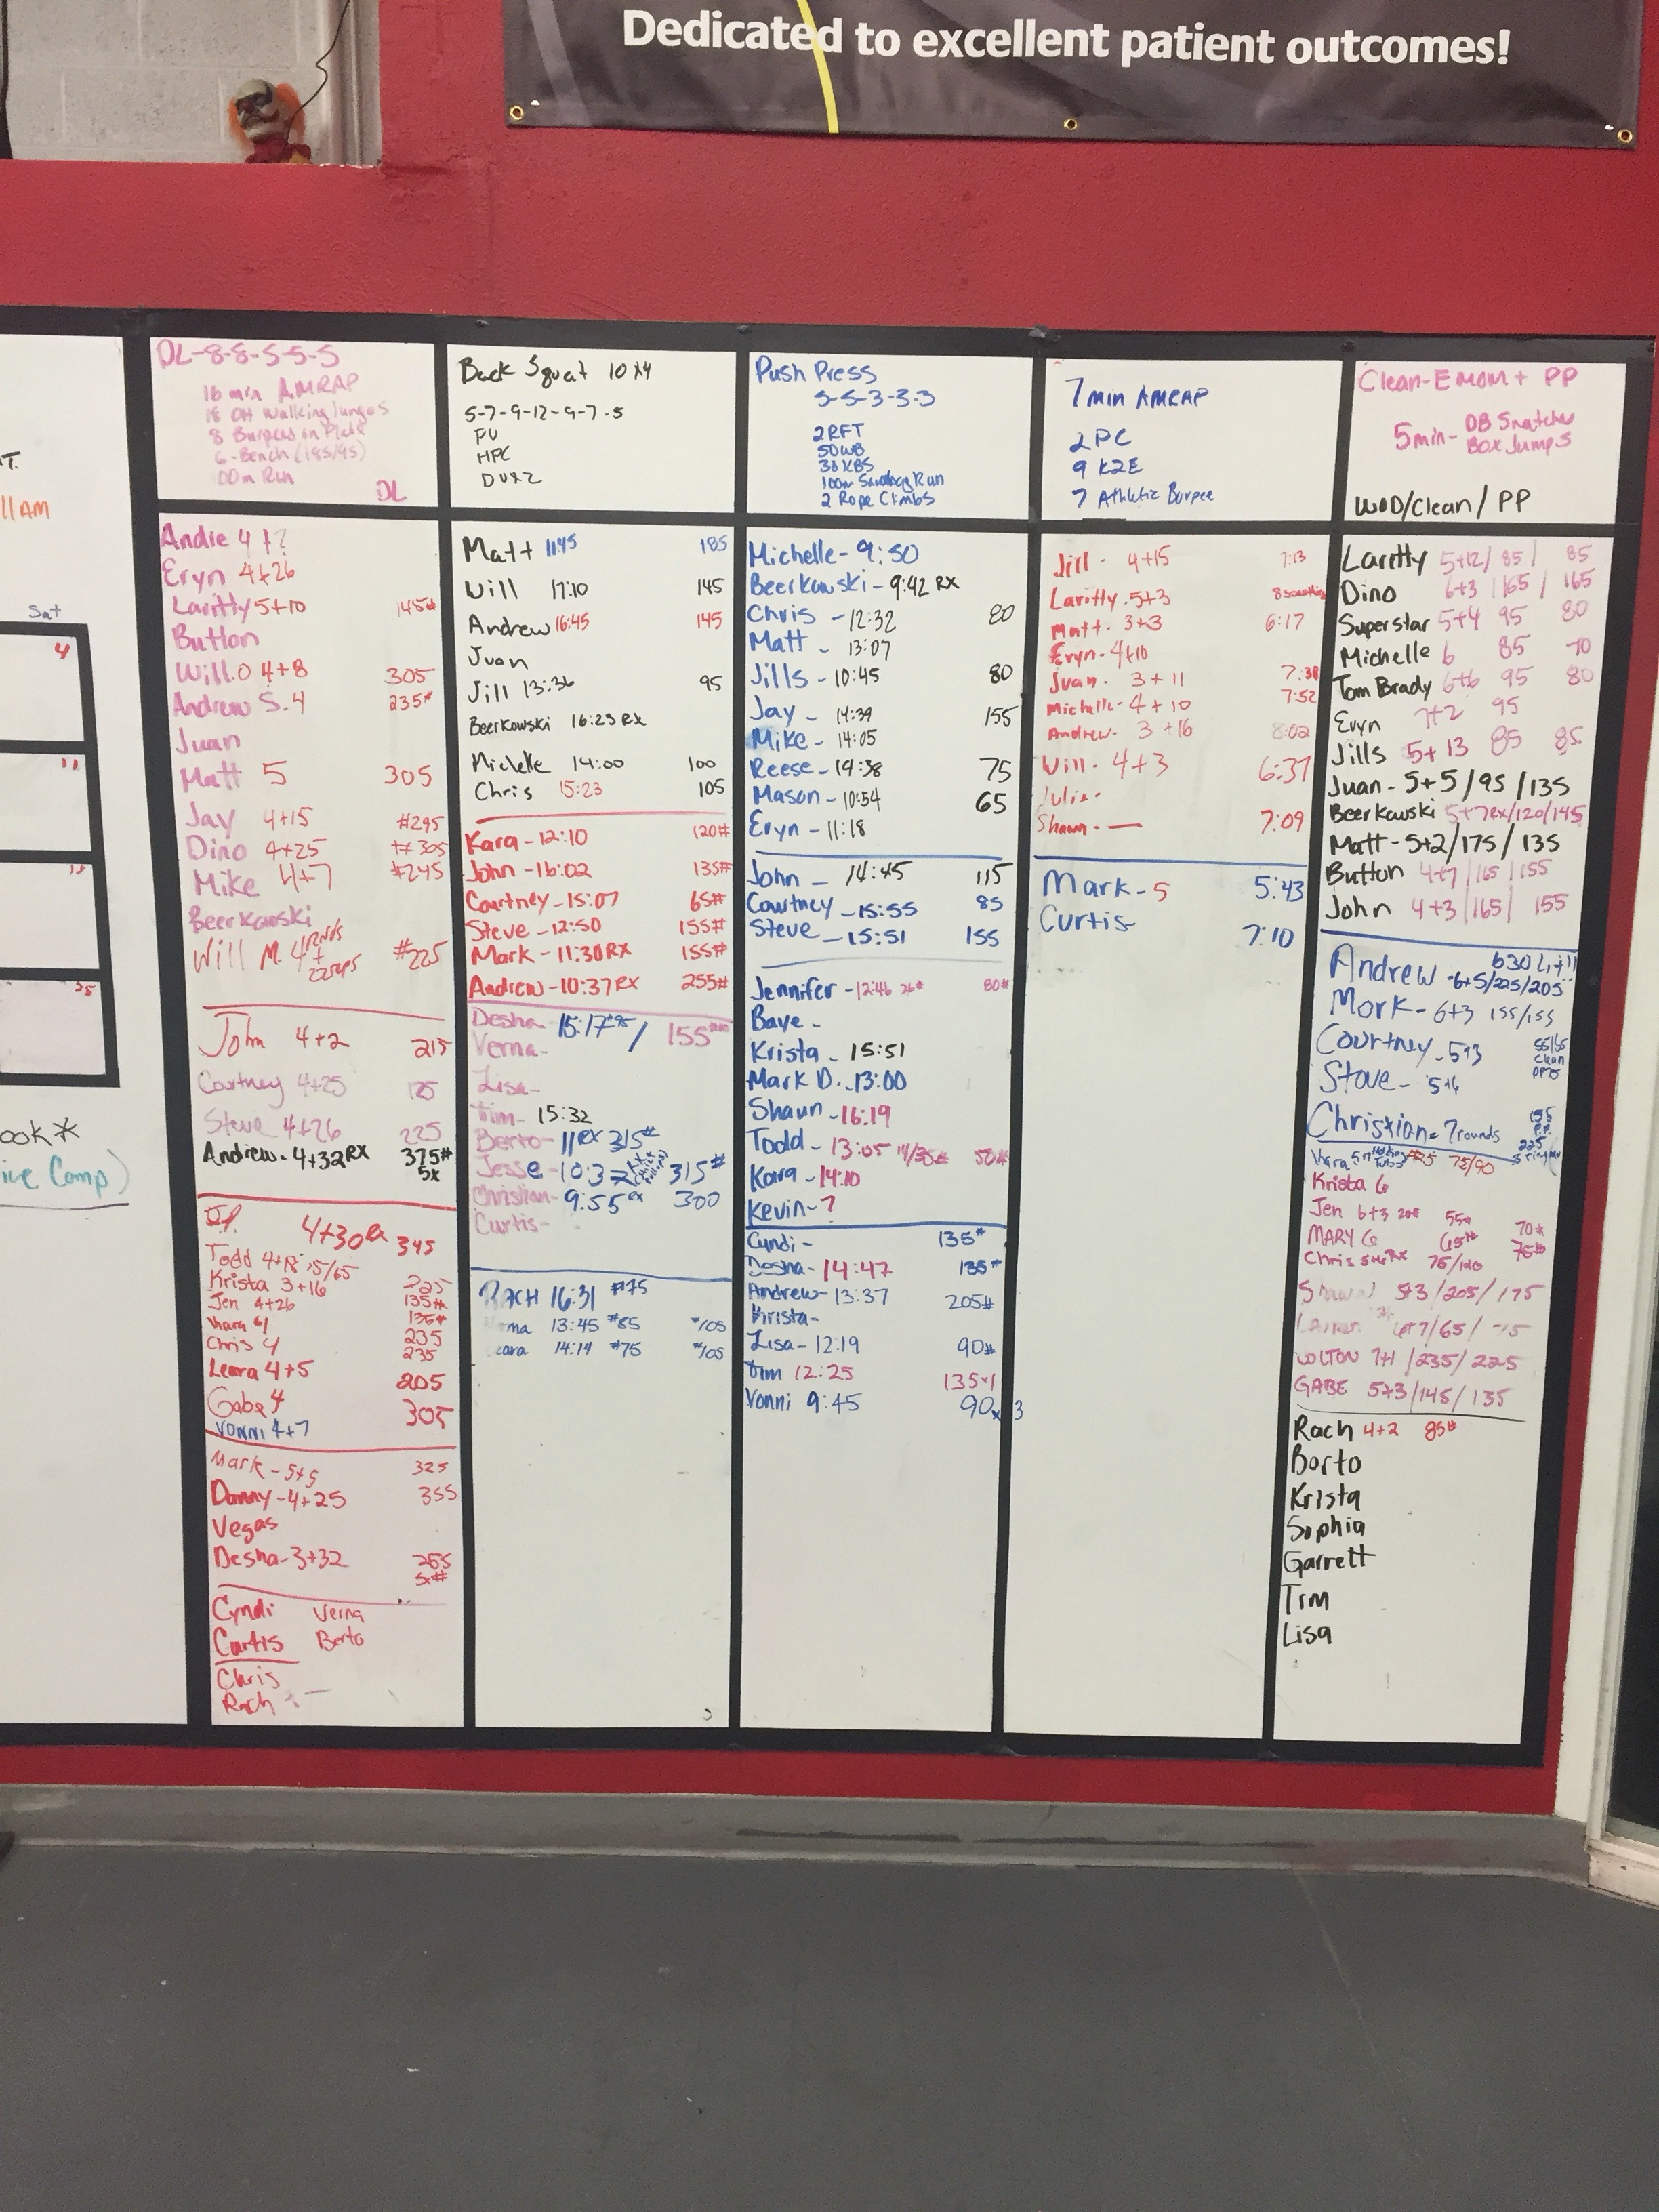 Dedicated to excellent patient outcomes!
T.
11AM
Sat
4
11
18
25
ook*
ive Comp)
DL-8-8-5-5-5
16 min AMRAP
OH Walking lunges
8 Burpees on Plate
6-Bench (185/95)
00m Run
DL
Andie 4+?
Eryn 4+26
Laritty 5+10 145#
Button
Will.O 4+8 305
Andrew S. 4 235#
Juan
Matt 5 305
Jay 4+15 #295
Dino 4+25 #305
Mike 4+7 #245
Beerkowski
Will M. 4 rnds + #225
John 4+2 215
Courtney 4+25 125
Steve 4+26 225
Andrew. 4+32 RX 375#
5x
4+30 RX 345
Todd 15/65
Krista 3+16 225
Jen 4+26 135#
135#
Chris 4 235
235
Leara 4+5 205
Gabe 4 305
Vonni 4+7
Mark - 5+5 325
Danny - 4+25 355
Vegas
Desha - 3+32 265
5x#
Cyndi Verna
Curtis Berto
Chris
Rach
Back Squat 10x4
5-7-9-12-9-7-5
PU
HPC
DUx2
Matt 11:45 185
Will 17:10 145
Andrew 16:45 145
Juan
Jill 13:36 95
Beerkowski 16:23 RX
Michelle 14:00 100
Chris 15:23 105
Kara - 12:10 120#
John - 16:02 135#
Courtney - 15:07 65#
Steve - 12:50 155#
Mark - 11:30 RX 155#
Andrew - 10:37 RX 255#
Desha 15:17 / 155
Verna-
Lisa-
Tim- 15:32
Berto- 11 RX 315#
Jesse 315#
Christian- 9:55 RX 300
Curtis-
RACH 16:31 #75
ma 13:45 #85 #105
eara 14:14 #75 #105
Push Press
5-5-3-3-3
2RFT
50WB
30 KBS
100m Sandbag Run
2 Rope Climbs
Michelle - 9:50
Beerkowski - 9:42 RX
Chris - 12:32 80
Matt - 13:07
Jills - 10:45 80
Jay - 14:39 155
Mike - 14:05
Reese - 14:38 75
Mason - 10:54 65
Eryn - 11:18
John - 14:45 115
Courtney - 15:55 85
Steve - 15:51 155
Jennifer - 12:46 26# 80#
Baye -
Krista - 15:51
Mark D. - 13:00
Shaun - 16:19
Todd - 13:05 14/35# 50#
Kara - 14:10
Kevin - ?
Cyndi - 135#
Desha - 14:47 135#
Andrew - 13:37 205#
Krista -
Lisa - 12:19 90#
Tim 12:25 135x1
Vonni 9:45 90x3
7 min AMRAP
2 PC
9 K2E
7 Athletic Burpee
Jill - 4+15 7:13
Laritty - 5+3 8 something
Matt - 3+3 6:17
Eryn - 4+10
Juan - 3+11 7:38
Michelle - 4+10 7:52
Andrew - 3+16 8:02
Will - 4+3 6:37
Julie -
Shawn - — 7:09
Mark - 5 5:43
Curtis 7:10
Clean-EMOM + PP
5min- DB Snatches
Box Jumps
WOD/Clean/PP
Laritty 5+12/ 85/ 85
Dino 6+3 /165/ 165
Superstar 5+4 95 80
Michelle 6 85 70
Tom Brady 6+6 95 80
Eryn 7+2 95
Jills 5+13 85 85
Juan - 5+5/95/135
Beerkowski 5+7rx/120/145
Matt - 5+2/175/135
Button 4+7/165/155
John 4+3/165/ 155
Andrew - 6+5/225/205
Mark - 6+3 155/155
Courtney - 5+3 clean
Steve - 5+6
Christian - 7rounds
75/90
Krista 6
Jen 6+3 20# 55# 70#
MARY 6 65# 75#
Chris 75/120
5+3/205/175
COLTON 7+1/235/225
GABE 5+3/145/135
Rach 4+2 85#
Berto
Krista
Sophia
Garrett
Tim
Lisa